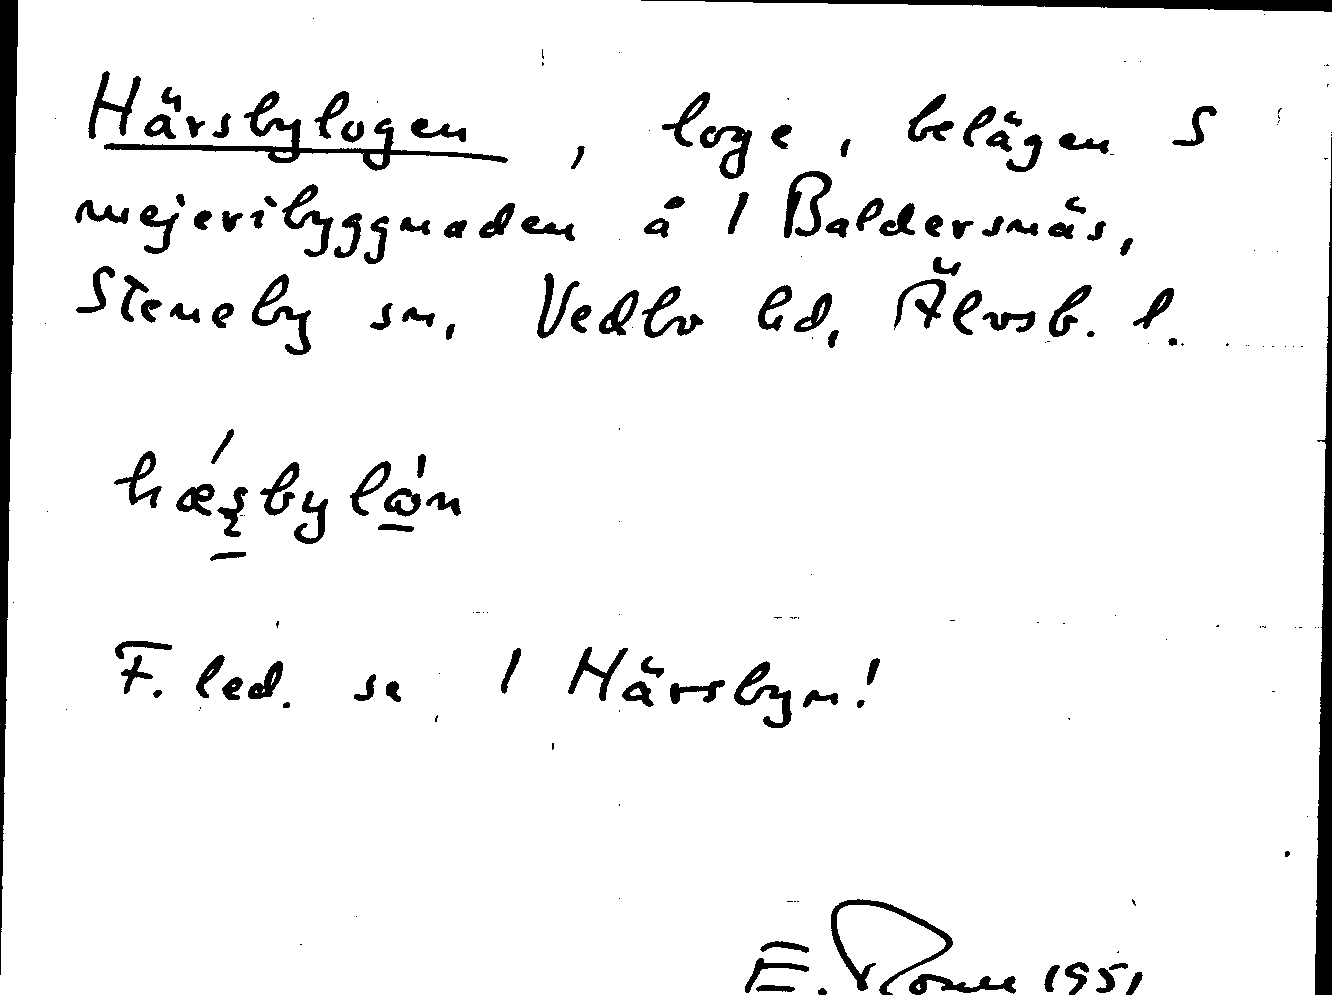 Härsbylogen, loge, belägen S
mejeribyggnaden å 1 Baldersnäs,
Steneby sn, Vedbo hd, Älvsb. l.
F. led. se 1 Härsbyn!
E. 1951